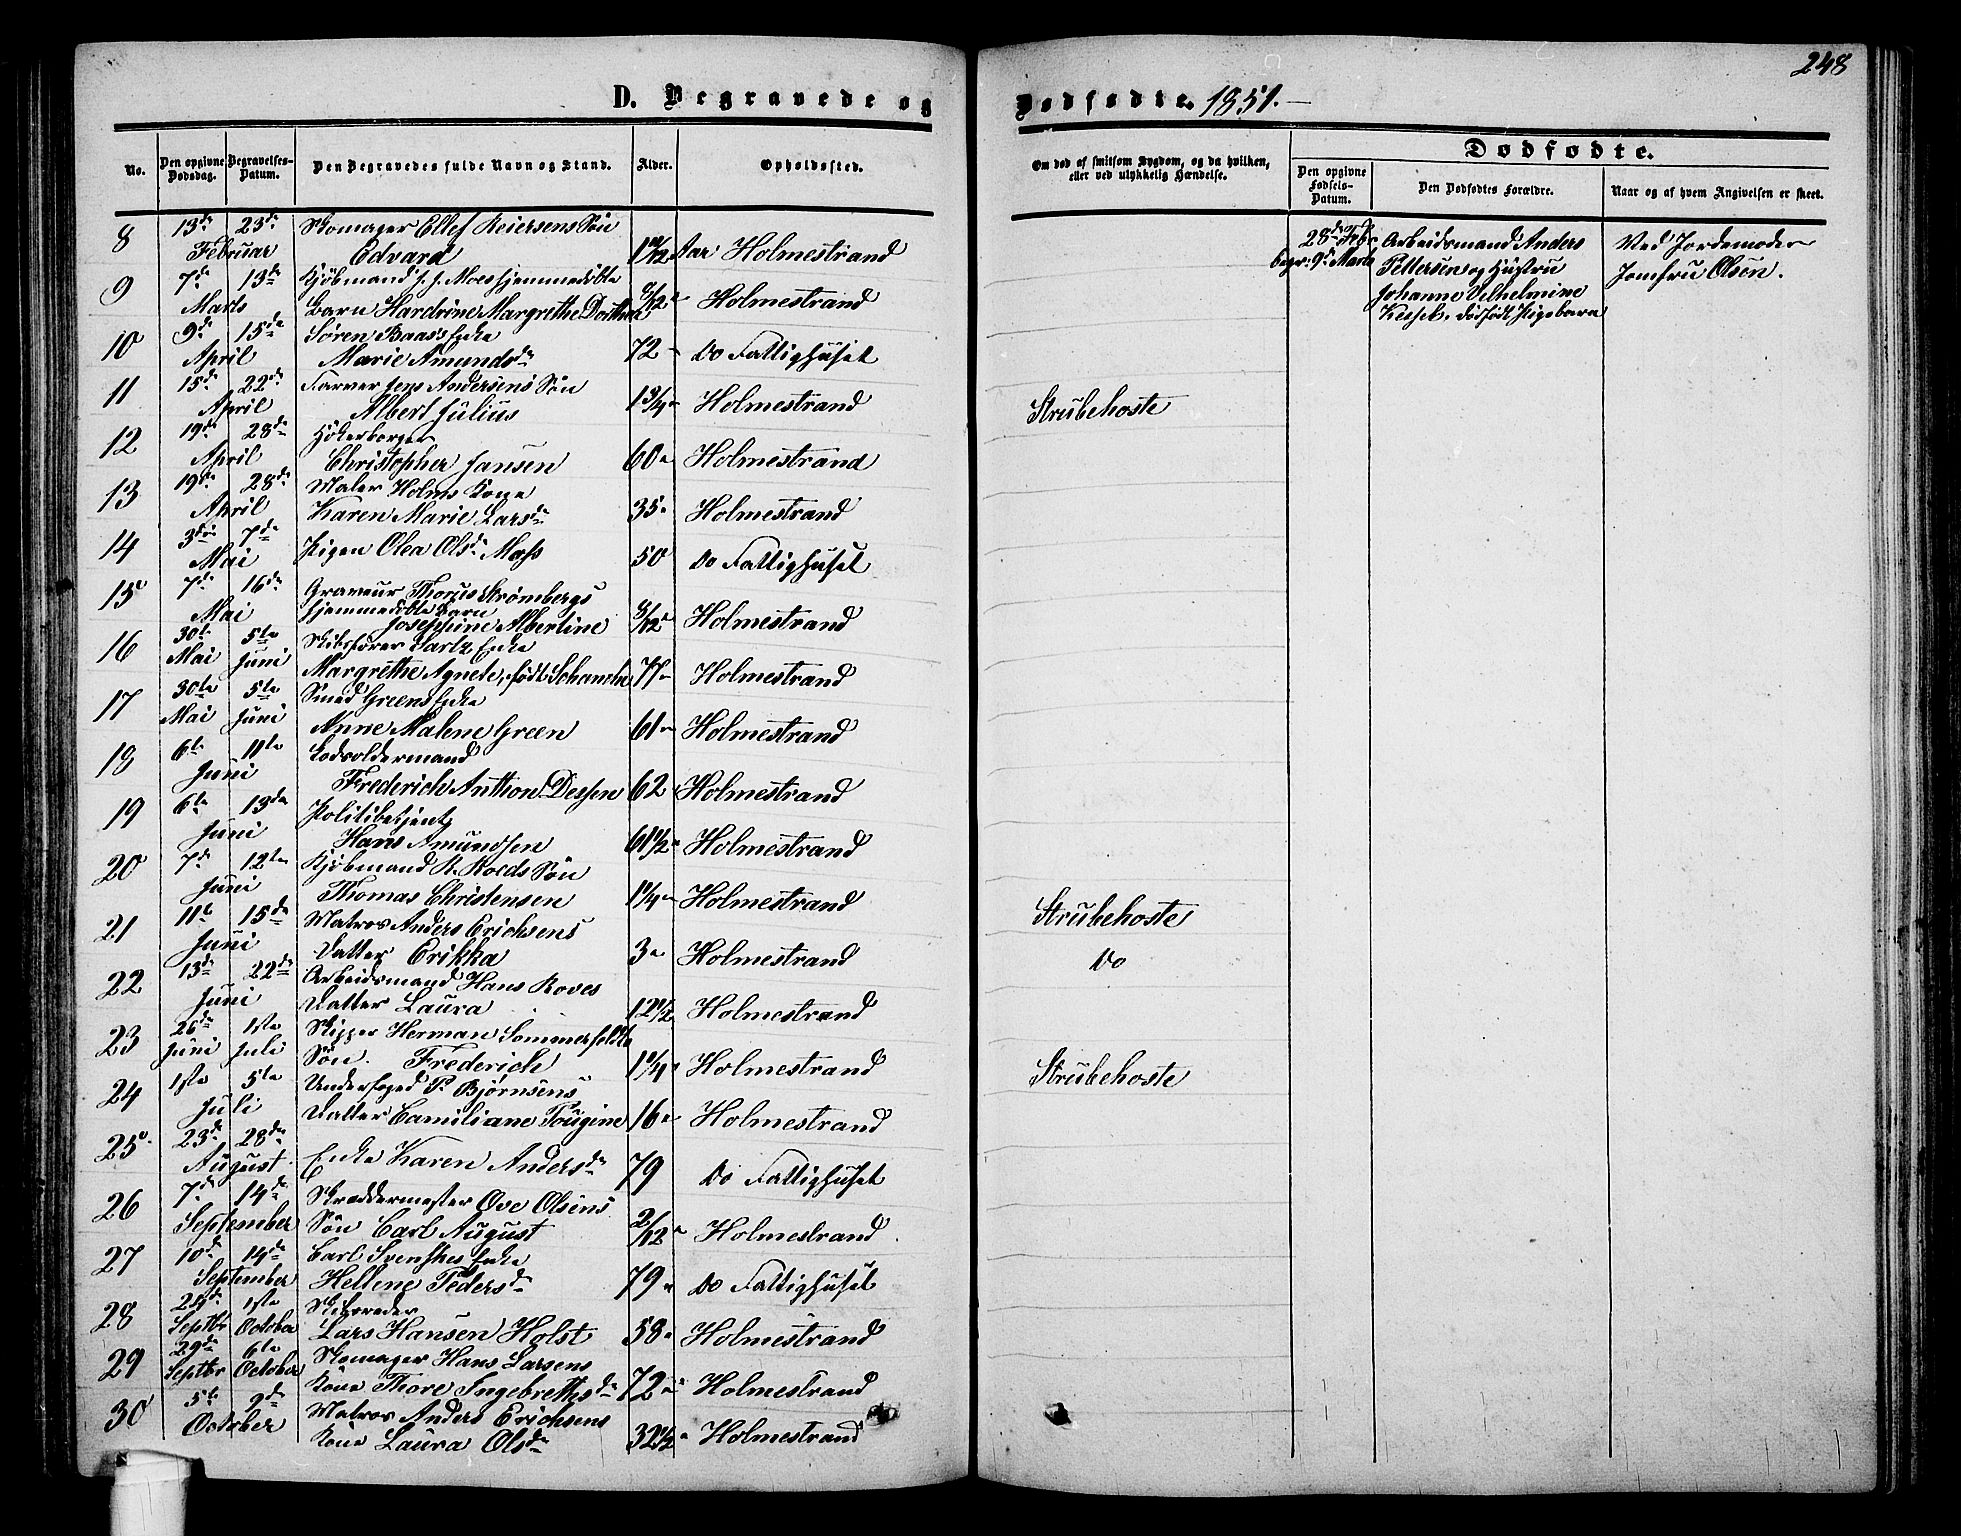 248
D. Begravede og Dødfødte. 1851.
No.
Den opgivne Dødsdag.
Begravelses-Datum.
Den Begravedes fulde Navn og Stand.
Alder.
Opholdssted.
Om død af smitsom Sygdom, og da hvilken, eller ved ulykkelig Hændelse.
Dødfødte.
Den opgivne Fødsels-Datum.
Den Dødfødtes Forældre.
Naar og af hvem Angivelsen er skeet.
8 13de 23de Skomager Ellef Reiersens Søn
Februar Edvard 1 1/2 Aar Holmestrand
28de Febr. Arbeidsmand Anders Ved Jordemoder
begr. 9de Marts Pettersen og Hustru Jomfru Olsen.
Johanne Vilhelmine
dødfødt Pigebarn
9 7de 13de Kjøbmand Moes hjemmedøbte
Marts Barn Hardrine Margrethe Dorthea 8/12 Holmestrand
10 9de 15de Søren Baass Enke
April Marie Amundsdr 72 Do Fattighuset
11 15de 22de Farver Jens Andersens Søn
April Albert Julius 1 3/4 Holmestrand Strubehoste
12 19de 28de Høkerborger
April Christopher Jansen 60 Holmestrand
13 19de 28de Maler Holms Kone
April Karen Marie Larsdr 35 Holmestrand
14 3die 7de
Mai Pigen Olea Olsdr Moss 50 Do Fattighuset
15 7de 16de Graveur Thorus Strømbergs
Mai hjemmedøbte Barn
Josephine Albertine 8/12 Holmestrand
16 30te 5te Skibsfører Enke
Mai Juni Margrethe Agnete, født 77 Holmestrand
17 30te 5te Smed Greens Enke
Mai Juni Anne Malene Green 61 Holmestrand
18 6te 11te Lodsoldermand
Juni Frederich Anthon Dessen 62 Holmestrand
19 6te 13de Politibetjent
Juni Hans Amundsen 61 1/2 Holmestrand
20 7de 12te Kjøbmand R. Roeds Søn
Juni Thomas Christensen 1 1/4 Holmestrand Strubehoste
21 11te 15de Matros Anders Erichsens
Juni Datter Erikka 3 Holmestrand Do
22 13de 22de Arbeidsmand Hans Roves
Juni Datter Laura 12 1/2 Holmestrand
23 26de 1ste Skipper Herman Sommerfeldts
Juni Juli Søn. Frederich 1 1/4 Holmestrand Strubehoste
24 1ste 5te Underfoged P. Bjørnsens
Juli Datter Camiliane Tougine 16 Holmestrand
25 23de 28de
August Enke Karen Andersdr 79 Do Fattighuset
26 7de 14de Skræddermester Ove Olsens
September Søn Carl August 2/12 Holmestrand
27 10de 14de Carl Svenskes Enke
September Hellene Pedersdr 79 Do Fattighuset
28 1ste Skibsreder
Septbr October Lars Hansen Holst 58 Holmestrand
29 29de 6te Skomager Hans Larsens
Septbr October Kone Thore Ingebrethsdr 72 Holmestrand
30 5te 9de Matros Anders Erichsens
October Kone Laura Olsdr 32 1/2 Holmestrand